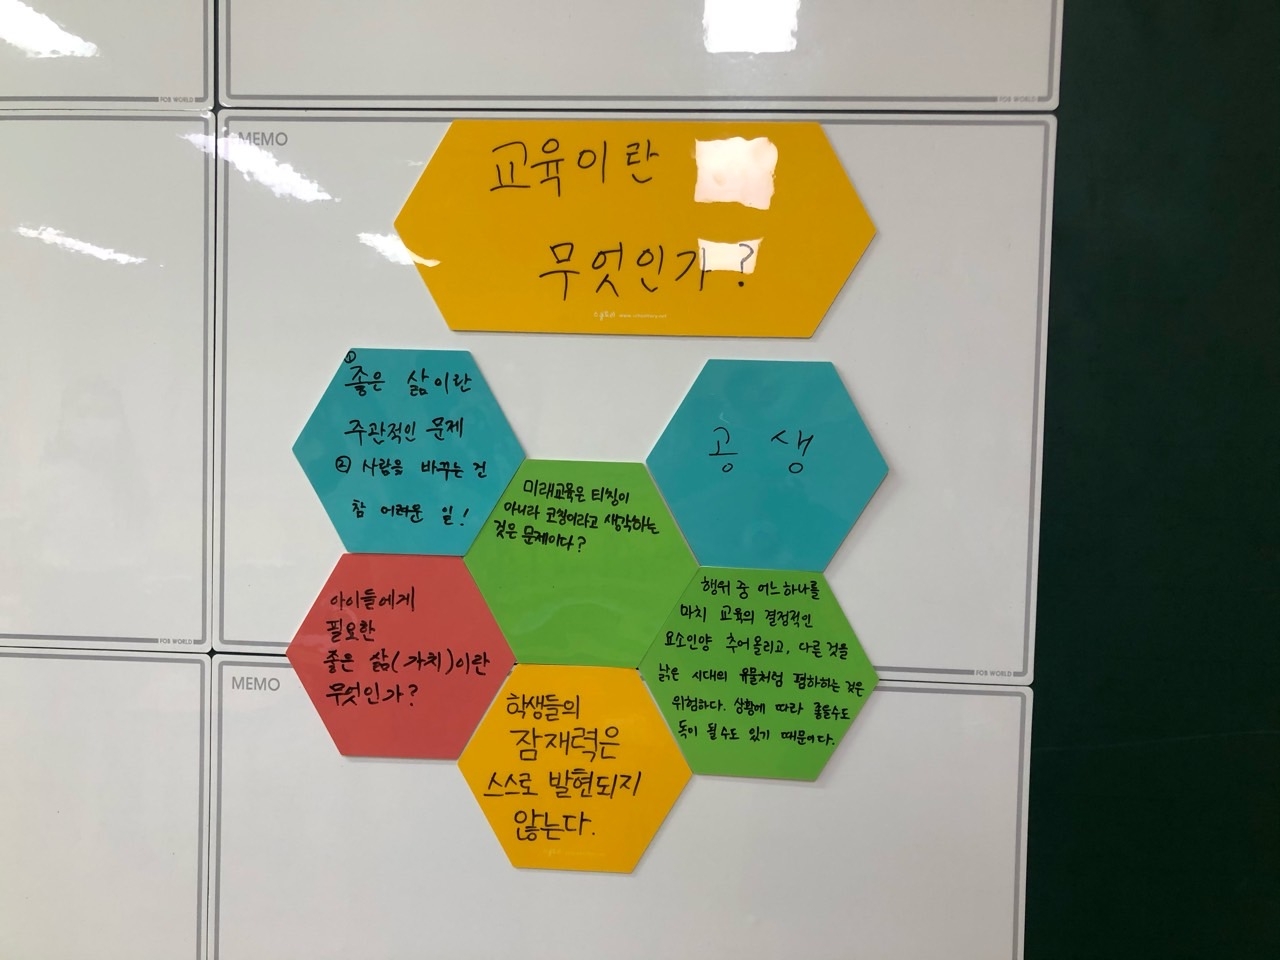 FOR WORLD
FOR WORLD
MEMO
교육이란
무엇인가?
①
좋은 삶이란
주관적인 문제
② 사람을 바꾸는 건
참 어려운 일!
공생
미래교육은 티칭이
아니라 코칭이라고 생각하는
것은 문제이다?
아이들에게
필요한
좋은 삶(가치)이란
무엇인가?
행위 중 어느하나를
마치 교육의 결정적인
요소인양 추어올리고, 다른것을
낡은 시대의 유물처럼 폄하하는 것은
위험하다. 상황에 따라 좋을수도
독이 될수도 있기 때문이다.
학생들의
잠재력은
스스로 발현되지
않는다.
FOR WORLD
FOR WORLD
MEMO